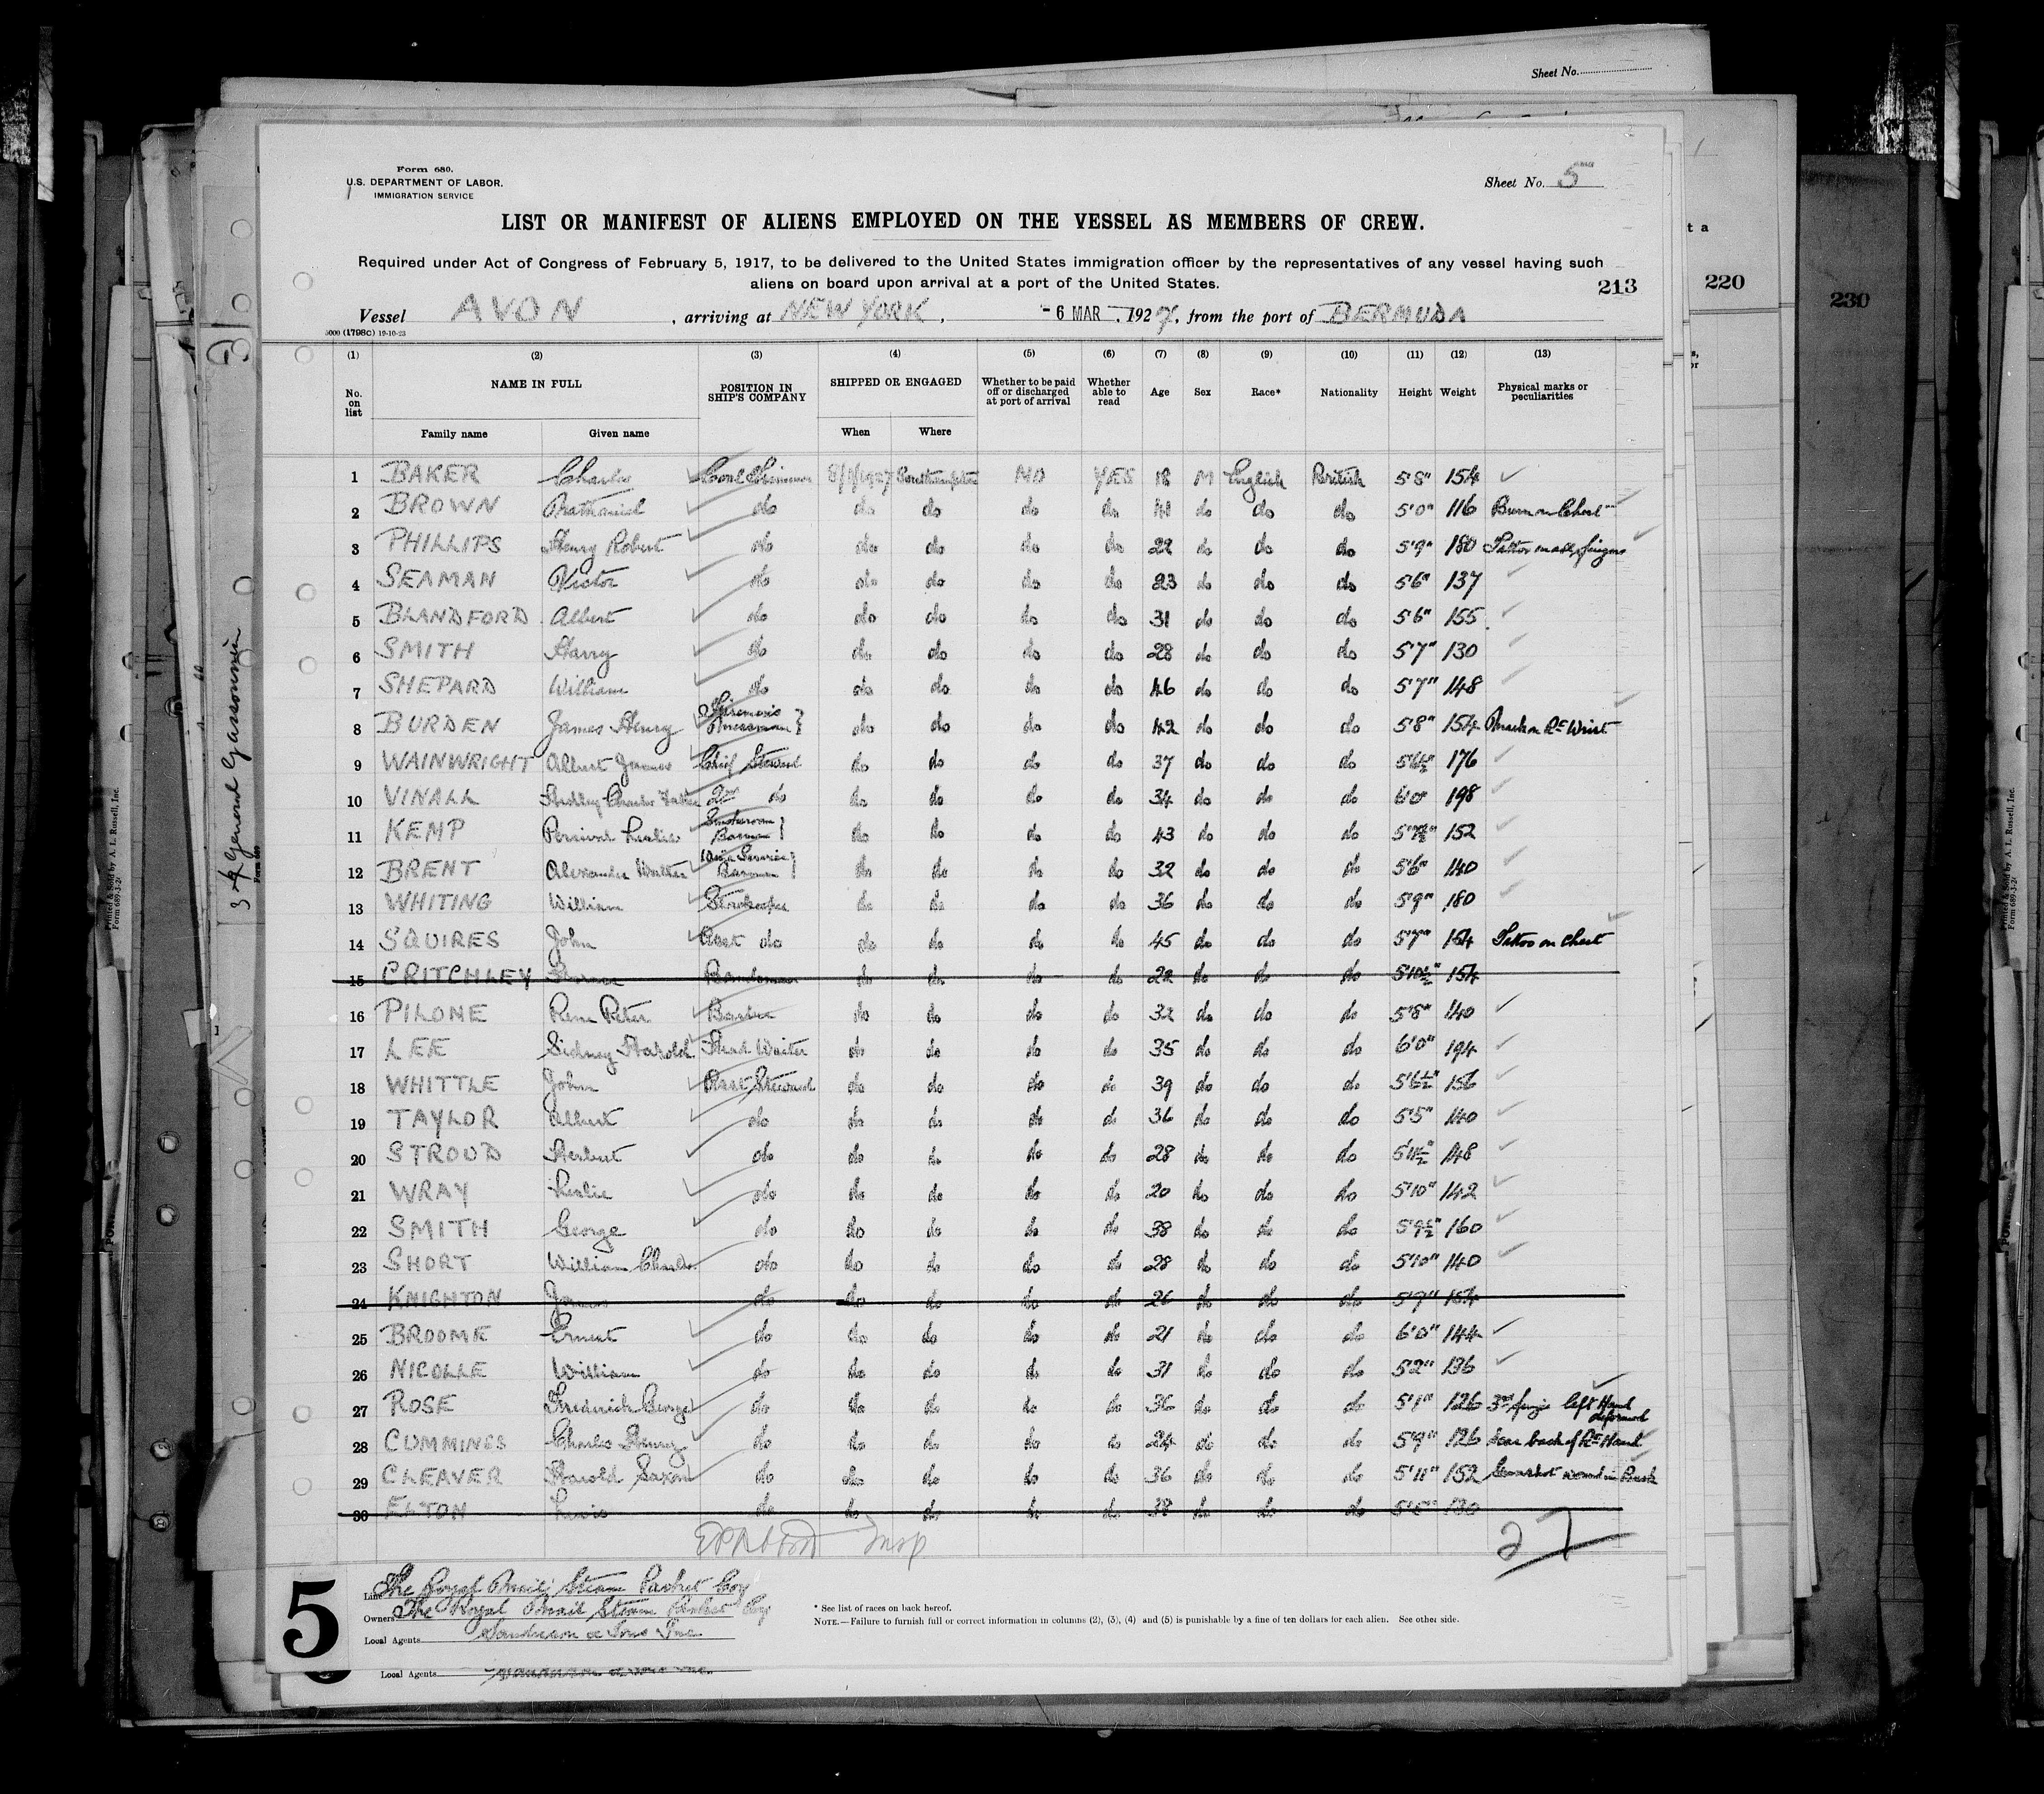 Sheet No.
Form 680.
U.S. DEPARTMENT OF LABOR.
IMMIGRATION SERVICE
Sheet No. 5
LIST OR MANIFEST OF ALIENS EMPLOYED ON THE VESSEL AS MEMBERS OF CREW.
Required under Act of Congress of February 5, 1917, to be delivered to the United States immigration officer by the representatives of any vessel having such
aliens on board upon arrival at a port of the United States.
213
220
230
Vessel AVON, arriving at NEW YORK, - 6 MAR, 1927, from the port of BERMUDA
5000 (1798C) 19-10-23
(1) (2) (3) (4) (5) (6) (7) (8) (9) (10) (11) (12) (13)
No. on list NAME IN FULL POSITION IN SHIP'S COMPANY SHIPPED OR ENGAGED Whether to be paid off or discharged at port of arrival Whether able to read Age Sex Race* Nationality Height Weight Physical marks or peculiarities
Family name Given name When Where
1 BAKER Charles 8/1/1927 Southampton NO YES 18 M English British 5'8" 154
2 BROWN Nathaniel do do do do do 41 do do do 5'0" 116 Burn on Chest
3 PHILLIPS Henry Robert do do do do do 22 do do do 5'9" 180 Tattoo marks fingers
4 SEAMAN Victor do do do do do 23 do do do 5'6" 137
5 BLANDFORD Albert do do do do do 31 do do do 5'6" 155
6 SMITH Harry do do do do do 28 do do do 5'7" 130
7 SHEPARD William do do do do do 46 do do do 5'7" 148
8 BURDEN James Henry Firemen's Messman do do do do 42 do do do 5'8" 154 Mark on Rt Wrist
9 WAINWRIGHT Albert James Chief Steward do do do do 37 do do do 5'6½" 176
10 VINALL Charles 2nd do do do do do 34 do do do 6'0" 198
11 KEMP Percival Leslie Smokeroom Barman do do do do 43 do do do 152
12 BRENT Alexander Walter Barman do do do do 32 do do do 5'6" 140
13 WHITING William Storekeeper do do do do 36 do do do 5'9" 180
14 SQUIRES John Asst do do do do do 45 do do do 5'7" 154 Tattoo on Chest
15 CRITCHLEY Bandsman do do do do 22 do do do 5'10½" 154
16 PILONE Rene Peter Barber do do do do 32 do do do 5'8" 140
17 LEE Sidney Harold Head Waiter do do do do 35 do do do 6'0" 194
18 WHITTLE John Asst Steward do do do do 39 do do do 5'6½" 156
19 TAYLOR Albert do do do do do 36 do do do 5'5" 140
20 STROUD Herbert do do do do do 28 do do do 148
21 WRAY Leslie do do do do do 20 do do do 5'10" 142
22 SMITH George do do do do do 38 do do do 5'9½" 160
23 SHORT William Charles do do do do do 28 do do do 5'10" 140
24 KNIGHTON James do do do do do 26 do do do 5'9" 154
25 BROOME Ernest do do do do do 21 do do do 6'0" 144
26 NICOLLE William do do do do do 31 do do do 5'2" 136
27 ROSE Frederick George do do do do do 36 do do do 5'1" 126 3rd finger left Hand deformed
28 CUMMINES Charles Henry do do do do do 24 do do do 5'9" 126 Scar back of Rt Hand
29 CLEAVER Harold Saxon do do do do do 36 do do do 5'11" 152 Gunshot wound in Back
30 ELTON Lewis do do do do do 38 do do do 130
Insp
27
5
Line The Royal Mail Steam Packet Coy
Owners The Royal Mail Steam Packet Coy
Local Agents Sanderson & Sons Inc.
* See list of races on back hereof.
NOTE.—Failure to furnish full or correct information in columns (2), (3), (4) and (5) is punishable by a fine of ten dollars for each alien. See other side.
Local Agents
Printed & Sold by A. L. Russell, Inc.